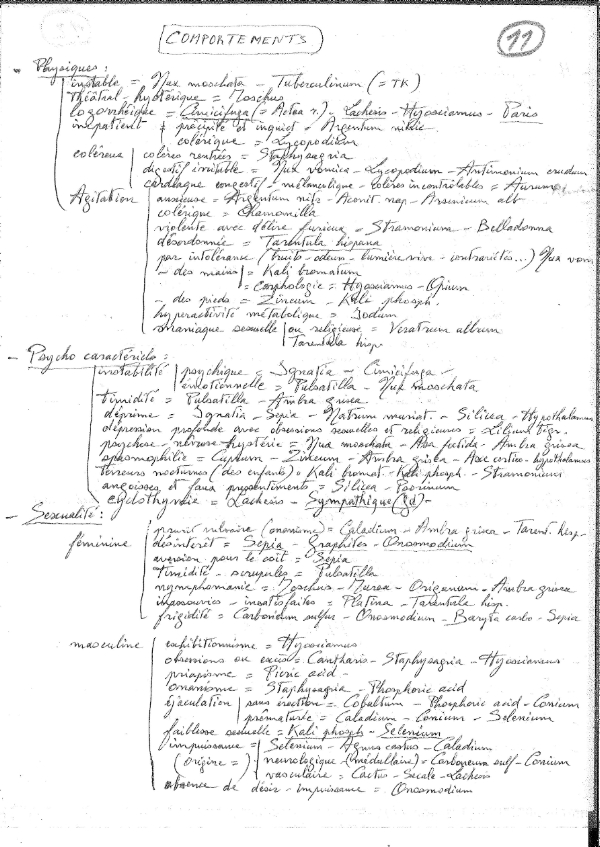 COMPORTEMENTS
11
- Physiques :
instable = Nux moschata - Tuberculinum (= TK)
Théâtral-hystérique = Moschus
logorrhéique = Cimicifuga (= Actea r.) - Lachesis - Hyosciamus - Paris
impatient précipité et inquiet = Argentum nitric
colérique = Lycopodium
coléreux colères rentrées = Staphysagria
digestif irritable = Nux vomica - Lycopodium - Antimonium crudum
cardiaque congestif - mélancolique - colères incontrôlables = Aurum
Agitation anxieuse = Argentum nitr - Aconit nap - Arsenicum alb
colérique = Chamomilla
violente avec délire furieux = Stramonium - Belladonna
désordonnée = Tarentula hispana
par intolérance (bruits - odeur - lumière vive - contrariétés...) Nux vom
- des mains = Kali bromatum
= carphologie = Hyosciamus - Opium
- des pieds = Zincum - Kali phosph.
hyperactivité métabolique = Iodum
maniaque sexuelle ou religieuse = Veratrum album
Tarentula hisp
- Psycho caractériels :
instabilité psychique = Ignatia - Cimicifuga -
émotionnelle = Pulsatilla - Nux moschata
timidité = Pulsatilla - Ambra grisea
déprime = Ignatia - Sepia - Natrum muriat. - Silicea - Hypothalamus
dépression profonde avec obsessions sexuelles et religieuses = Lilium tigr.
psychose - névrose hystérie = Nux moschata - Asa fœtida - Ambra grisea
spasmophilie = Cuprum - Zincum - Ambra grisea - Axe cortico-hypothalamus
terreurs nocturnes (des enfants) = Kali bromat - Kali phosph - Stramonium
angoisses et faux pressentiments = Silicea - Psorinum
cyclothymie = Lachesis - Sympathique (gd) -
- Sexualité :
prurit vulvaire (onanisme) = Caladium - Ambra grisea - Tarent. hisp.
féminine désintérêt = Sepia Graphites - Onosmodium
aversion pour le coït = Sepia
timidité - scrupules = Pulsatilla
nymphomanie = Moschus - Murex - Origanum - Ambra grisea
inassouvies - insatisfaites = Platina - Tarentula hisp.
frigidité = Carboneum sulfur - Onosmodium - Baryta carbo - Sepia
masculine exhibitionnisme = Hyosciamus
obsessions ou excès = Cantharis - Staphysagria - Hyosciamus
priapisme = Picric acid -
onanisme = Staphysagria - Phosphoric acid
éjaculation sans érection = Cobaltum - Phosphoric acid - Conium
prématurée = Caladium - Conium - Selenium
faiblesse sexuelle = Kali phosph - Selenium
impuissance = Selenium - Agnus castus - Caladium
(origine =) neurologique (médullaire) = Carboneum sulf - Conium
vasculaire = Cactus - Secale - Lachesis
absence de désir - impuissance = Onosmodium